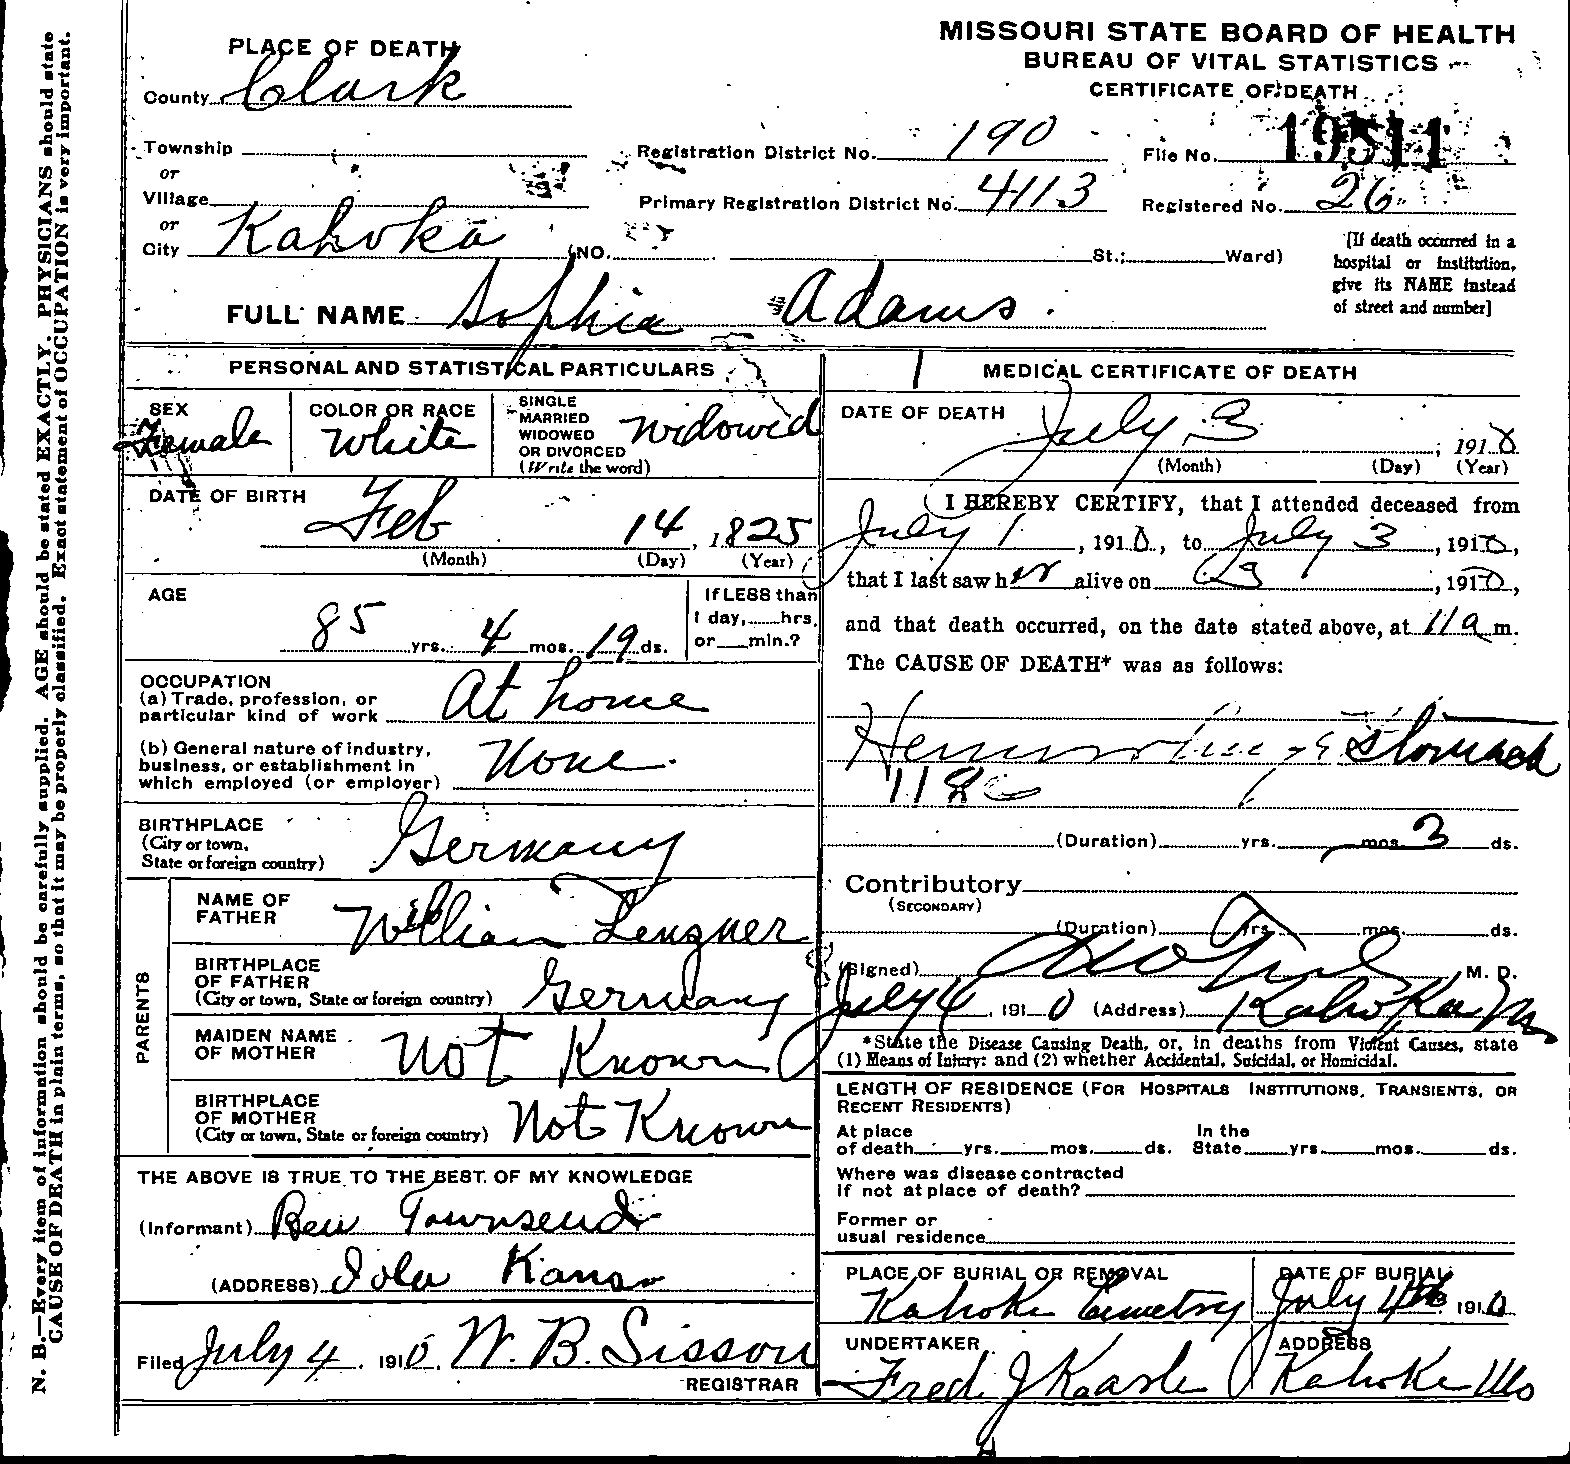 MISSOURI STATE BOARD OF HEALTH
BUREAU OF VITAL STATISTICS
CERTIFICATE OF DEATH
PLACE OF DEATH
County Clark
Township
or
Village
or
City Kahoka (NO. St.; Ward)
Registration District No. 190 File No. 19511
Primary Registration District No. 4113 Registered No. 26
[If death occurred in a
hospital or institution,
give its NAME instead
of street and number]
FULL NAME Sophia Adams.
PERSONAL AND STATISTICAL PARTICULARS
SEX
Female
COLOR OR RACE
White
SINGLE
MARRIED
WIDOWED
OR DIVORCED
(Write the word)
Widowed
DATE OF BIRTH
Feb 14, 1825
(Month) (Day) (Year)
AGE
85 yrs. 4 mos. 19 ds.
If LESS than
1 day, hrs.
or min.?
OCCUPATION
(a) Trade, profession, or
particular kind of work At home
(b) General nature of industry,
business, or establishment in
which employed (or employer) None.
BIRTHPLACE
(City or town,
State or foreign country) Germany
PARENTS
NAME OF
FATHER William
BIRTHPLACE
OF FATHER
(City or town, State or foreign country) Germany
MAIDEN NAME
OF MOTHER Not Known
BIRTHPLACE
OF MOTHER
(City or town, State or foreign country) Not Known
THE ABOVE IS TRUE TO THE BEST OF MY KNOWLEDGE
(Informant) Ben Townsend
(ADDRESS) Iola Kans
Filed July 4, 1910. W. B. Sisson
REGISTRAR
1 MEDICAL CERTIFICATE OF DEATH
DATE OF DEATH July 3, 1910
(Month) (Day) (Year)
I HEREBY CERTIFY, that I attended deceased from
July 1, 1910, to July 3, 1910,
that I last saw her alive on 3, 1910,
and that death occurred, on the date stated above, at 11 a m.
The CAUSE OF DEATH* was as follows:
Hemorrhage Stomach
118
(Duration) yrs. mos. 3 ds.
Contributory
(SECONDARY)
(Duration) yrs. mos. ds.
(Signed) M. D.
July 4, 1910 (Address) Kahoka Mo
*State the Disease Causing Death, or, in deaths from Violent Causes, state
(1) Means of Injury: and (2) whether Accidental, Suicidal, or Homicidal.
LENGTH OF RESIDENCE (FOR HOSPITALS INSTITUTIONS, TRANSIENTS, OR
RECENT RESIDENTS)
At place In the
of death yrs. mos. ds. State yrs. mos. ds.
Where was disease contracted
if not at place of death?
Former or
usual residence
PLACE OF BURIAL OR REMOVAL
Kahoka Cemetry
DATE OF BURIAL
July 4th 1910
UNDERTAKER
Fred J Karle
ADDRESS
Kahoka Mo
N. B.—Every item of information should be carefully supplied. AGE should be stated EXACTLY. PHYSICIANS should state
CAUSE OF DEATH in plain terms, so that it may be properly classified. Exact statement of OCCUPATION is very important.